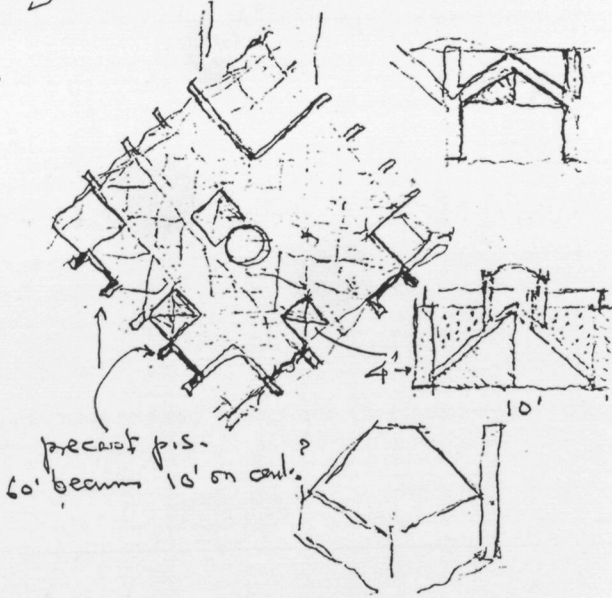 4'
10'
precast p.s.
60' beams 10' on cent. ?